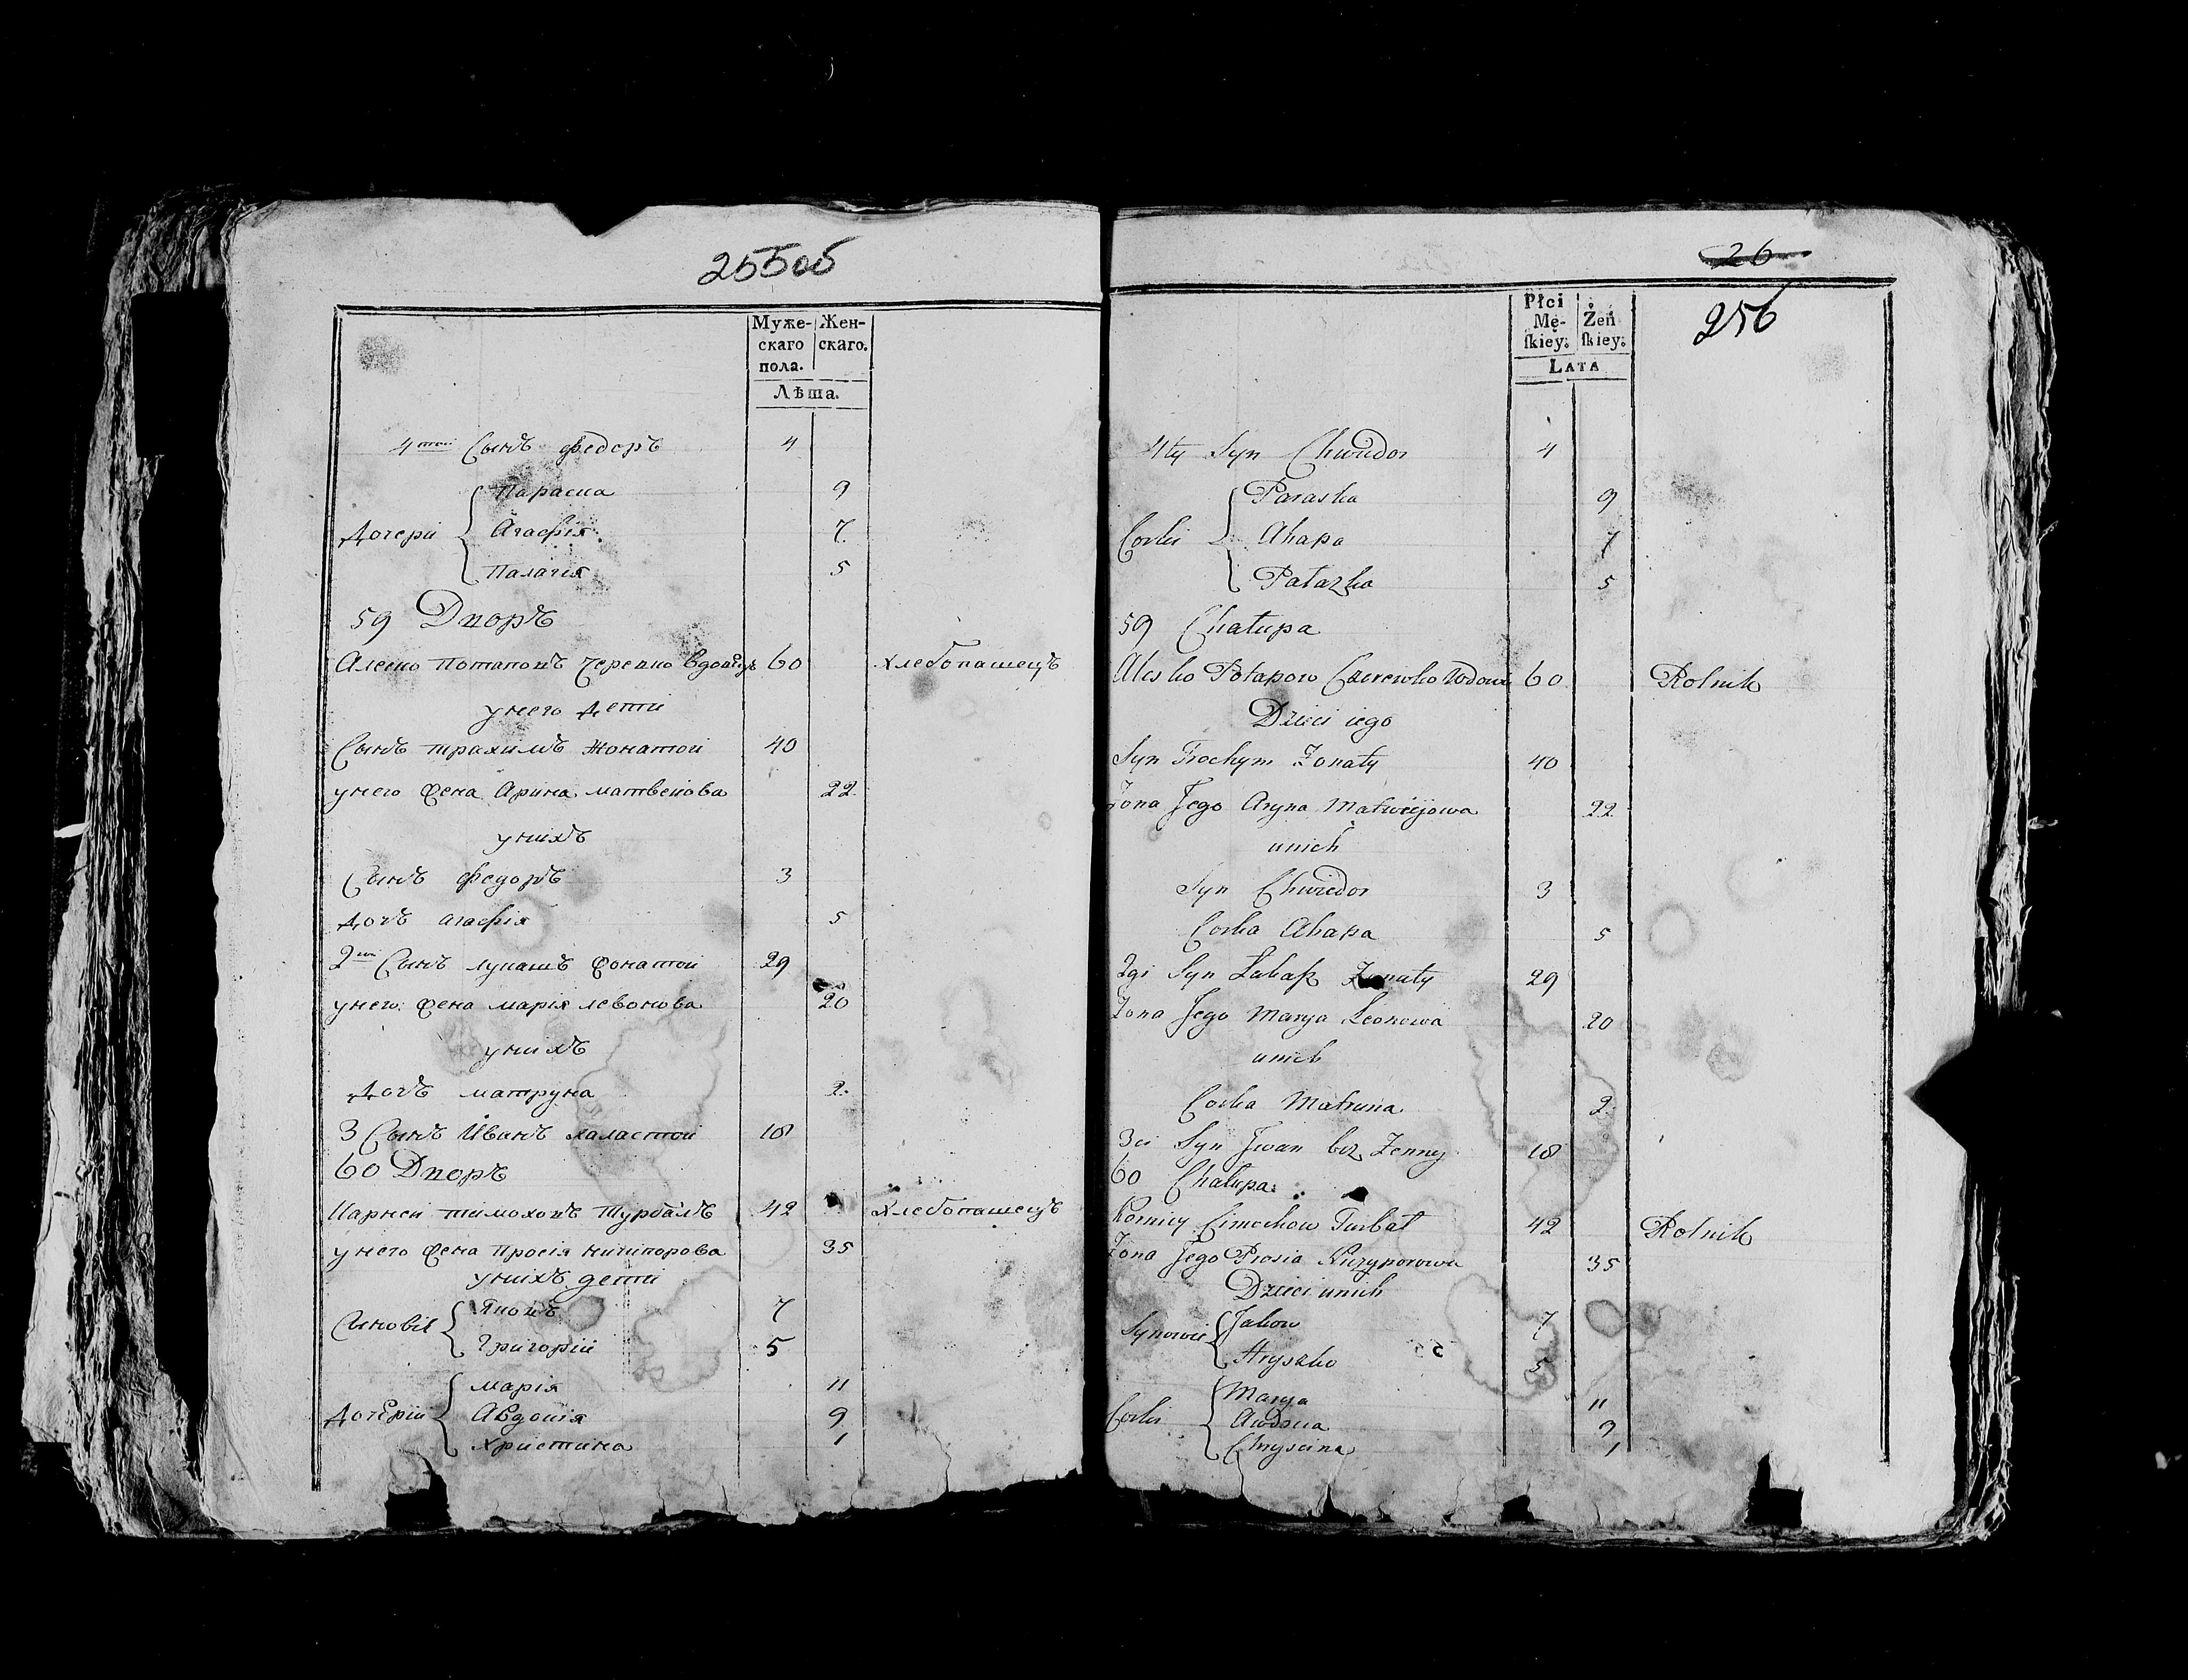 255об
Муже- Жен-
скаго скаго.
пола.
Лѣта.
4той Сынъ федоръ 4
Параска 9
Дочери Агафія 7
Палагія 5
59 Дворъ
Алеско Потаповъ Черевко вдовецъ 60 хлебопашецъ
унего дети
Сынъ трахимъ жонатой 40
унего жена Арина матвеиова 22
унихъ
Сынъ федоръ 3
дочъ агафія 5
2ой Сынъ лукашъ жонатой 29
унего жена марія левонова 20
унихъ
дочъ матруна 2
3 Сынъ Иванъ халастой 18
60 Дворъ
Карней тимоховъ Турбалъ 42 хлебопашецъ
унего жена Просія ничипорова 35
унихъ дети
Яковъ 7
Синовія
Григорій 5
марія 11
дочерій Авдокія 9
христина 1
26
256
Płci
Mę- Żeń
ſkiey: ſkiey:
LATA
4ty Syn Chwiedor 4
Paraska 9
Corki Ahapa 7
Pałazka 5
59 Chałupa
Alesko Potapow Czerewko Wdowiec 60 Rolnik
Dzieci iego
Syn Trochym Zonaty 40
Zona Jego Aryna Matwiejowa 22
unich
Syn Chwiedor 3
Corka Ahapa 5
2gi Syn Łukaſz Zonaty 29
Zona Jego Marya Leonowa 20
unich
Corka Matruna 2
3ci Syn Jwan bez Zenny 18
60 Chałupa
Korniey Cimochow Turbał 42 Rolnik
Zona Jego Prosia Niczyporowa 35
Dzieci unich
Jakow 7
Synowie
Hryszko 5
Marya 11
Corki Awdocia 9
Chryscina 1